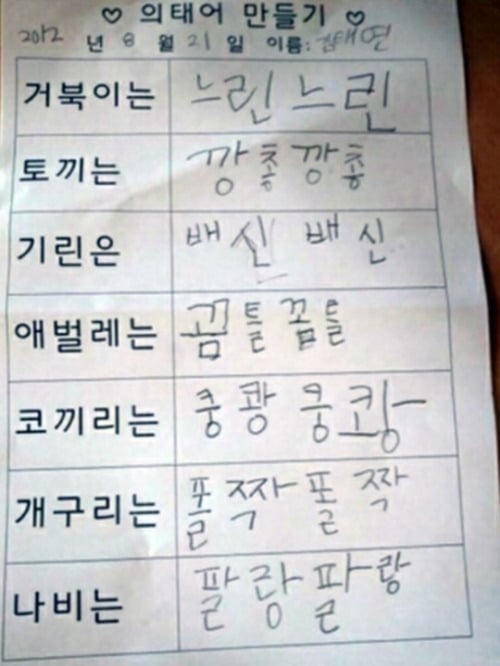 ♡ 의태어 만들기 ♡
2012 년 8 월 21 일 이름: 김태연
거북이는 느린 느린
토끼는 깡충 깡충
기린은 배신 배신
애벌레는 꿈틀 꼼틀
코끼리는 쿵쾅 쿵쾅
개구리는 폴짝 폴짝
나비는 팔랑 팔랑